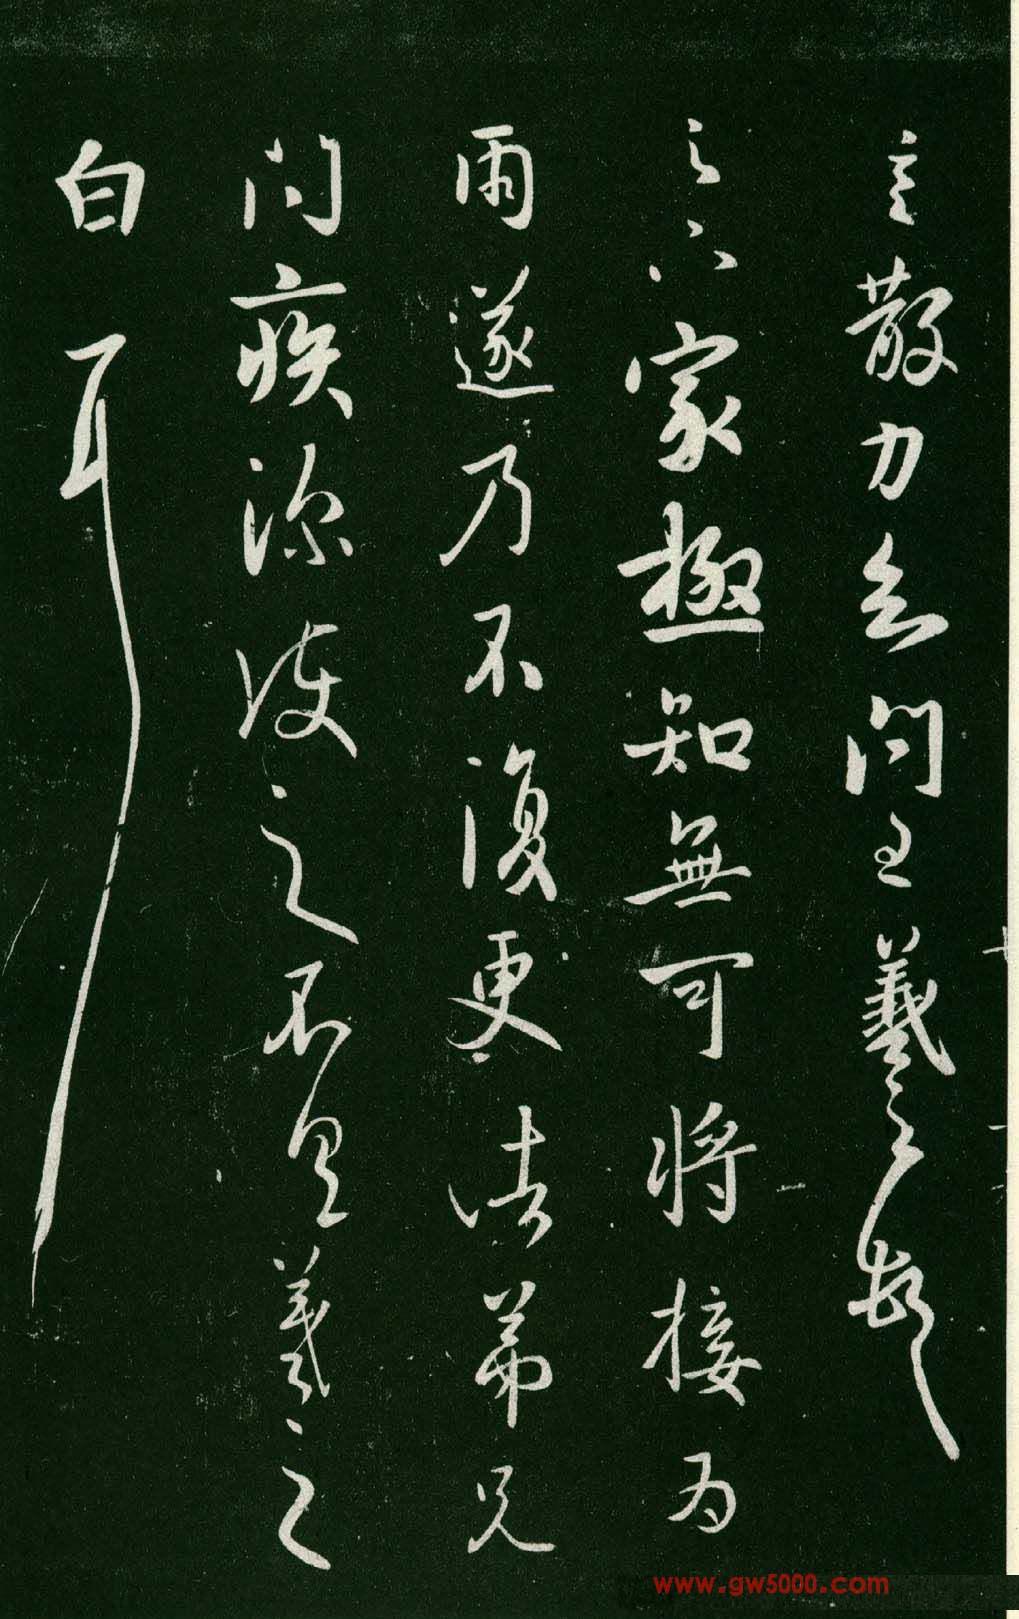 散力問王羲之頓
足下家極知無可將接為
雨遂乃不復更諸弟兄
問疾深護之不具羲之
白耳
www.gw5000.com